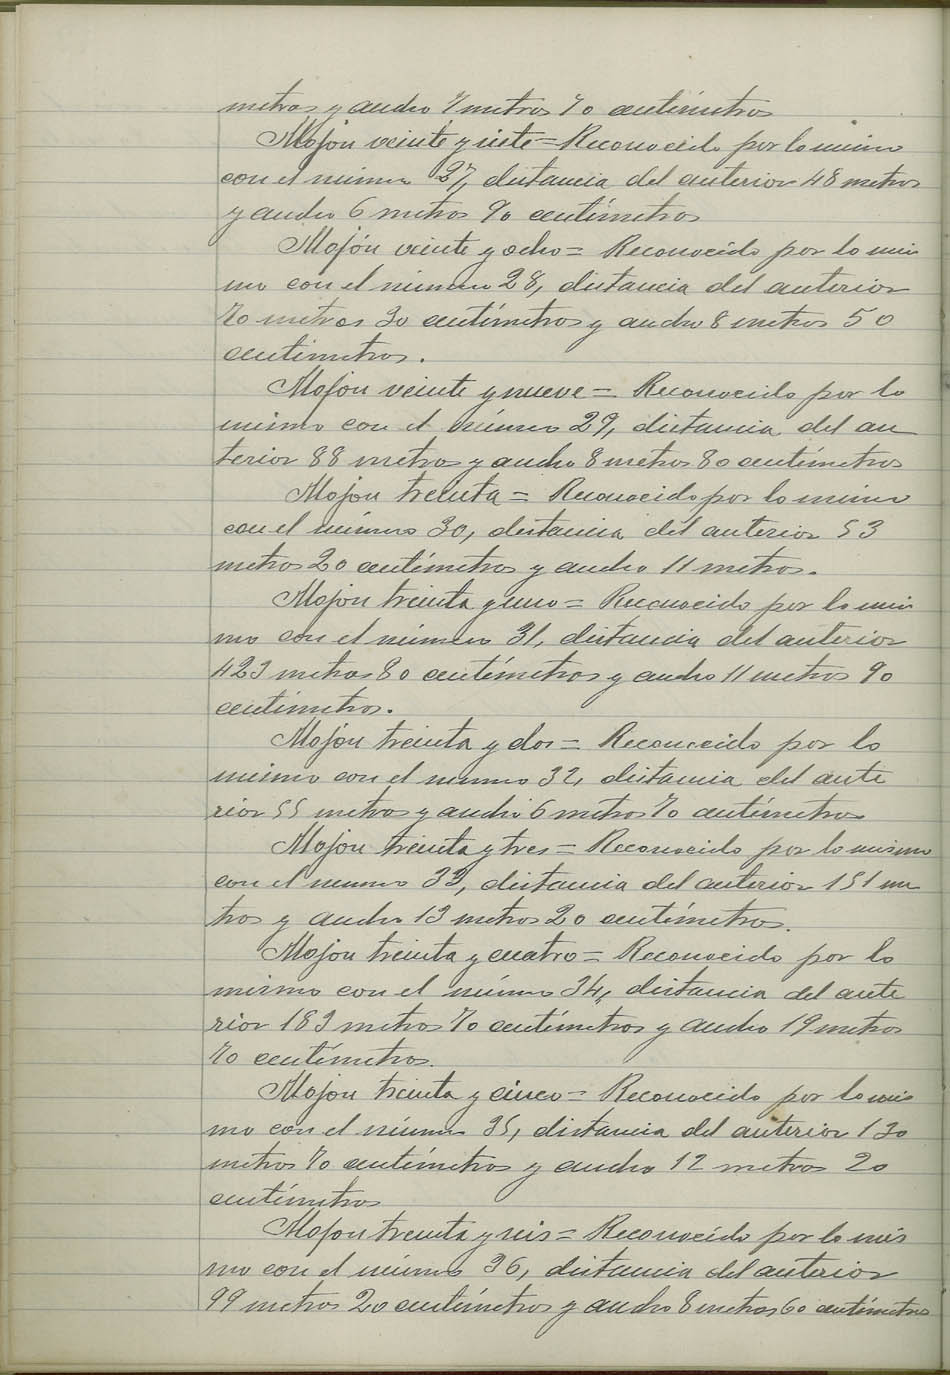 metros y ancho 7 metros 70 centímetros
Mojón veinte y siete = Reconocido por lo mismo
con el número 27, distancia del anterior 48 metros
y ancho 6 metros 90 centímetros
Mojón veinte y ocho = Reconocido por lo mis
mo con el número 28, distancia del anterior
70 metros 30 centímetros y ancho 8 metros 50
centimetros.
Mojon veinte y nueve = Reconocido por lo
mismo con el número 29, distancia del an
terior 88 metros y ancho 8 metros 80 centímetros
Mojon treinta = Reconocido por lo mismo
con el número 30, distancia del anterior 53
metros 20 centímetros y ancho 11 metros.
Mojon treinta y uno = Reconocido por lo mis
mo con el número 31, distancia del anterior
423 metros 80 centímetros y ancho 11 metros 90
centímetros.
Mojon treinta y dos = Reconocido por lo
mismo con el numero 32, distancia del ante
rior 55 metros y ancho 6 metros 70 centímetros
Mojon treinta y tres = Reconocido por lo mismo
con el numero 33, distancia del anterior 151 me
tros y ancho 13 metros 20 centímetros.
Mojon treinta y cuatro = Reconocido por lo
mismo con el número 34, distancia del ante
rior 183 metros 70 centímetros y ancho 19 metros
70 centímetros.
Mojon treinta y cinco = Reconocido por lo mis
mo con el número 35, distancia del anterior 130
metros 70 centímetros y ancho 12 metros 20
centímetros
Mojon treinta y seis = Reconocido por lo mis
mo con el número 36, distancia del anterior
99 metros 20 centímetros y ancho 8 metros 60 centímetros